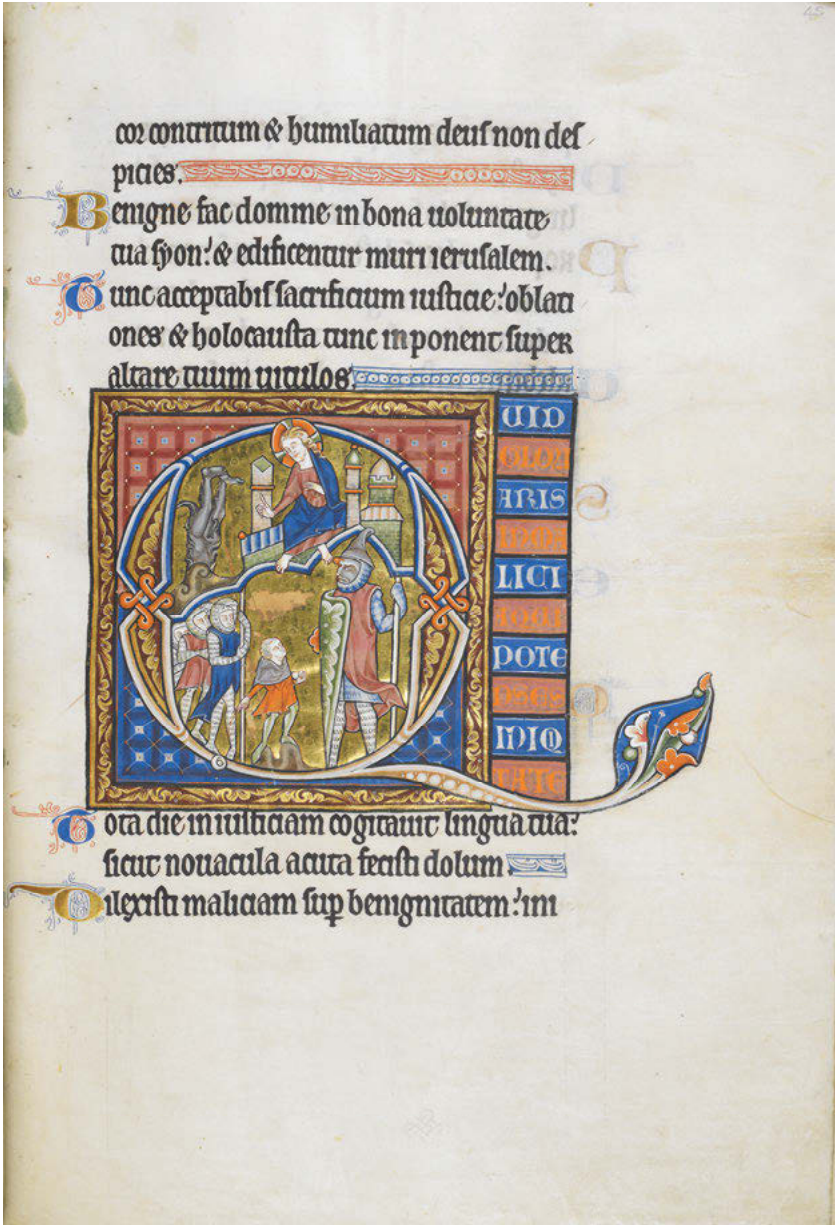 cor contritum & humiliatum deus non des
picies.
Benigne fac domine in bona uoluntate
tua syon: & edificentur muri ierusalem.
Tunc acceptabis sacrificium iusticie: oblati
ones & holocausta tunc inponent super
altare tuum uitulos.
QUID
GLORI
ARIS
INMA
LICI
A QUI
POTE
INIQ
TATE
Tota die iniusticiam cogitauit lingua tua:
sicut nouacula acuta fecisti dolum
Dilexisti maliciam sup benignitatem: ini